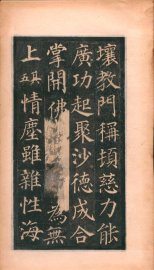 壤教門稱頓慈力能
廣功起聚沙德成合
掌開佛為無
上情塵雖雜性海